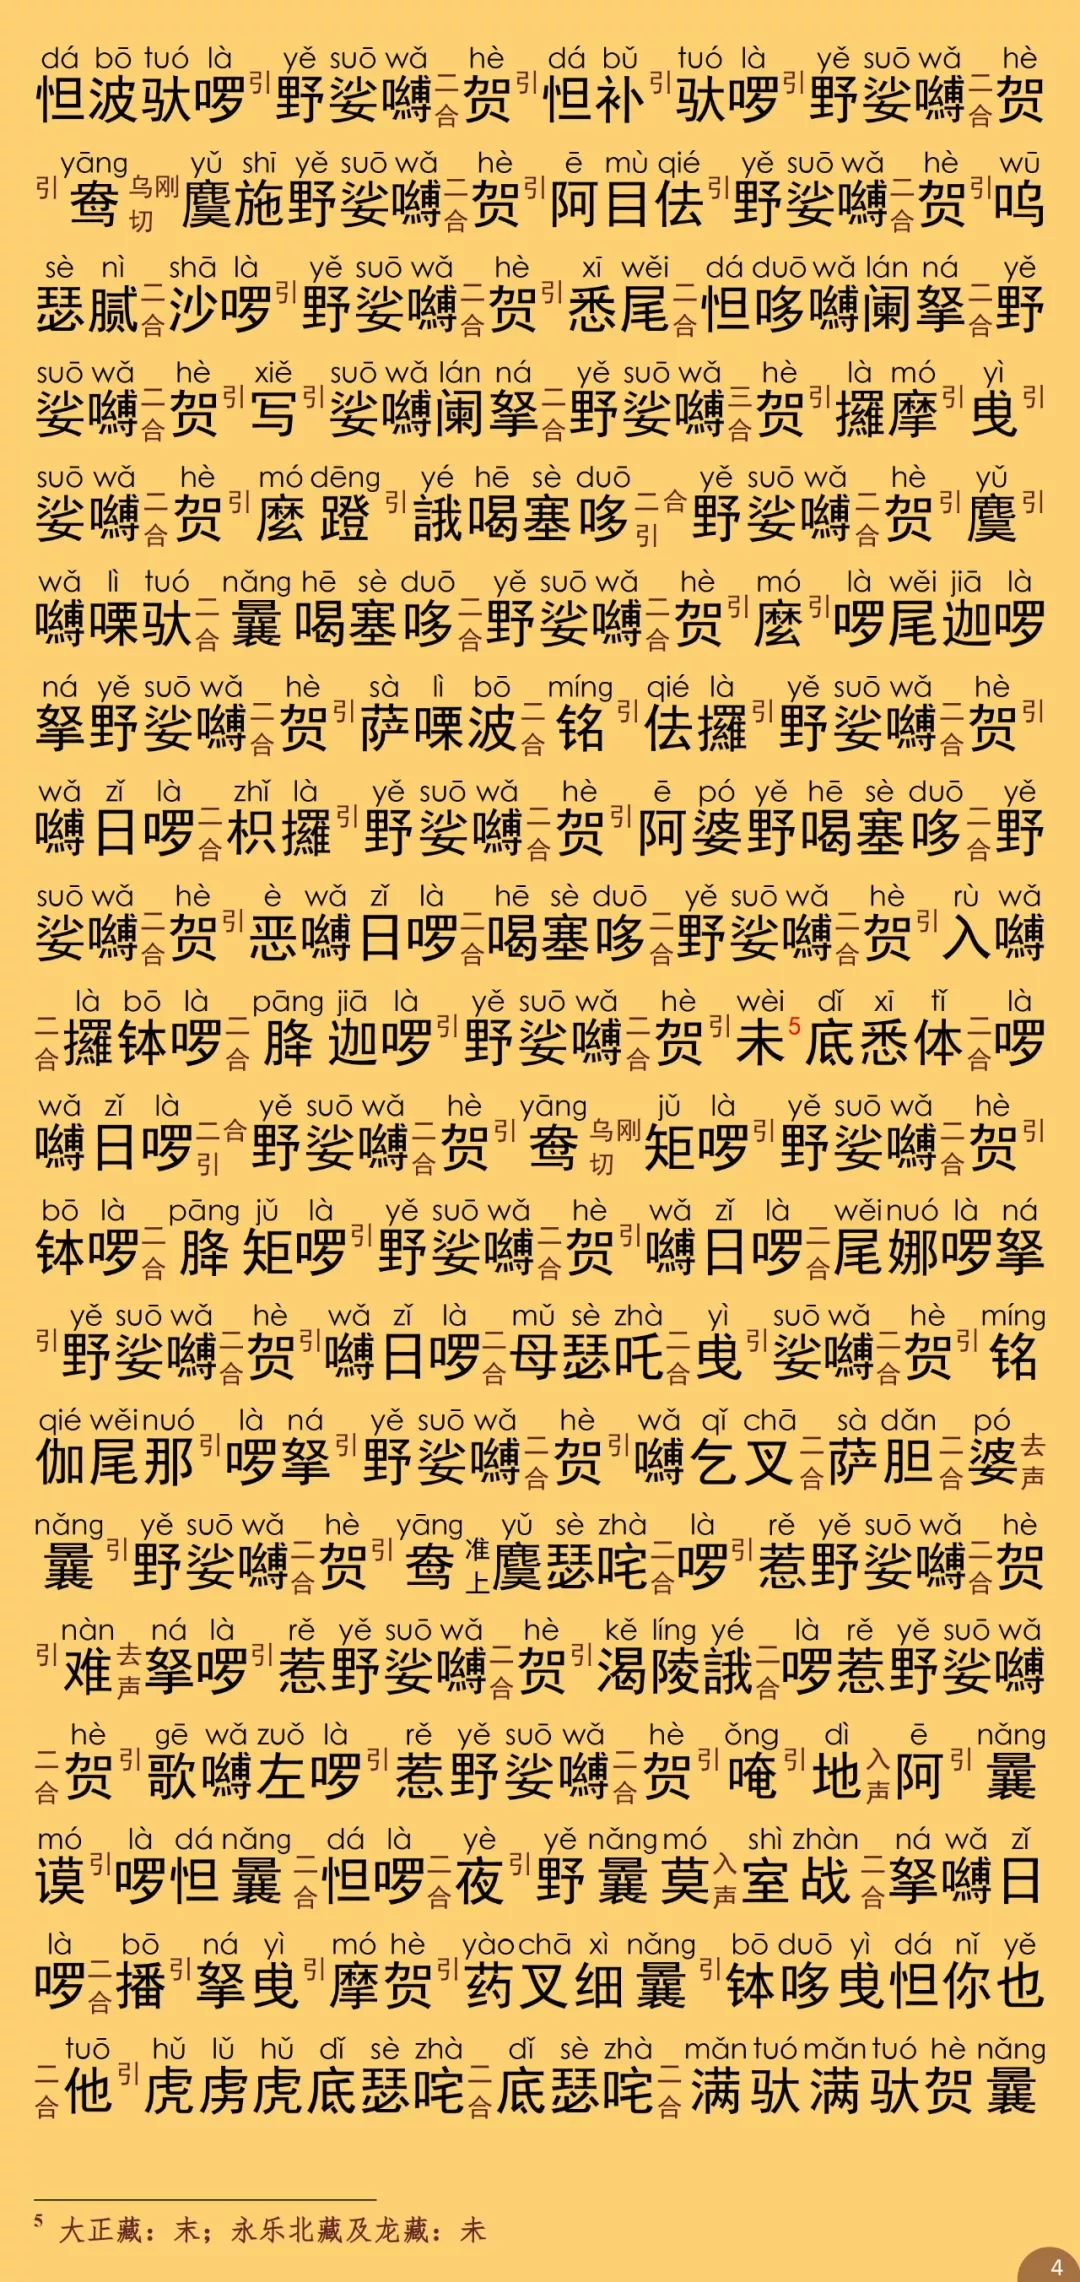 dá bō tuó là yě suō wǎ hè dá bǔ tuó là yě suō wǎ hè
怛波驮啰引野娑嚩二合贺引怛补引驮啰引野娑嚩二合贺
yāng yǔ shī yě suō wǎ hè ē mù qié yě suō wǎ hè wū
引鸯乌刚切麌施野娑嚩二合贺引阿目佉引野娑嚩二合贺引呜
sè nì shā là yě suō wǎ hè xī wěi dá duō wǎ lán ná yě
瑟腻二合沙啰引野娑嚩二合贺引悉尾二合怛哆嚩阑拏二合野
suō wǎ hè xiě suō wǎ lán ná yě suō wǎ hè là mó yì
娑嚩二合贺引写引娑嚩阑拏二合野娑嚩三合贺引攞摩引曳引
suō wǎ hè mó dēng yé hē sè duō yě suō wǎ hè yǔ
娑嚩二合贺引麼蹬引誐喝塞哆二合引野娑嚩二合贺引麌引
wǎ lì tuó nǎng hē sè duō yě suō wǎ hè mó là wěi jiā là
嚩㗚驮二合曩喝塞哆二合野娑嚩二合贺引麼引啰尾迦啰
ná yě suō wǎ hè sà lì bō míng qié là yě suō wǎ hè
拏野娑嚩二合贺引萨㗚波二合铭引佉攞引野娑嚩二合贺引
wǎ zǐ là zhǐ là yě suō wǎ hè ē pó yě hē sè duō yě
嚩日啰二合枳攞引野娑嚩二合贺引阿婆野喝塞哆二合野
suō wǎ hè è wǎ zǐ là hē sè duō yě suō wǎ hè rù wǎ
娑嚩二合贺引恶嚩日啰二合喝塞哆二合野娑嚩二合贺引入嚩
là bō là pāng jiā là yě suō wǎ hè wèi dǐ xī tǐ là
二合攞钵啰二合胮迦啰引野娑嚩二合贺引未5底悉体二合啰
wǎ zǐ là yě suō wǎ hè yāng jǔ là yě suō wǎ hè
嚩日啰二合引野娑嚩二合贺引鸯乌刚切矩啰引野娑嚩二合贺引
bō là pāng jǔ là yě suō wǎ hè wǎ zǐ là wěi nuó là ná
钵啰二合胮矩啰引野娑嚩二合贺引嚩日啰二合尾娜啰拏
yě suō wǎ hè wǎ zǐ là mǔ sè zhà yì suō wǎ hè míng
引野娑嚩二合贺引嚩日啰二合母瑟吒二合曳引娑嚩二合贺引铭
qié wěi nuó là ná yě suō wǎ hè wǎ qǐ chā sà dǎn pó
伽尾那引啰拏引野娑嚩二合贺引嚩乞叉二合萨胆二合婆去声
nǎng yě suō wǎ hè yāng yǔ sè zhà là rě yě suō wǎ hè
曩引野娑嚩二合贺引鸯准上麌瑟咤二合啰引惹野娑嚩二合贺
nàn ná là rě yě suō wǎ hè kě líng yé là rě yě suō wǎ
引难去声拏啰引惹野娑嚩二合贺引渴陵誐二合啰惹野娑嚩
hè gē wǎ zuǒ là rě yě suō wǎ hè ǒng dì ē nǎng
二合贺引歌嚩左啰引惹野娑嚩二合贺引唵引地入声阿引曩
mó là dá nǎng dá là yè yě nǎng mó shì zhàn ná wǎ zǐ
谟引啰怛曩二合怛啰二合夜引野曩莫入声室战二合拏嚩日
là bō ná yì mó hè yào chā xì nǎng bō duō yì dá nǐ yě
啰二合播引拏曳引摩贺引药叉细曩引钵哆曳怛你也
tuō hǔ lǔ hǔ dǐ sè zhà dǐ sè zhà mǎn tuó mǎn tuó hè nǎng
二合他引虎虏虎底瑟咤二合底瑟咤二合满驮满驮贺曩
5 大正藏：末；永乐北藏及龙藏：未
4